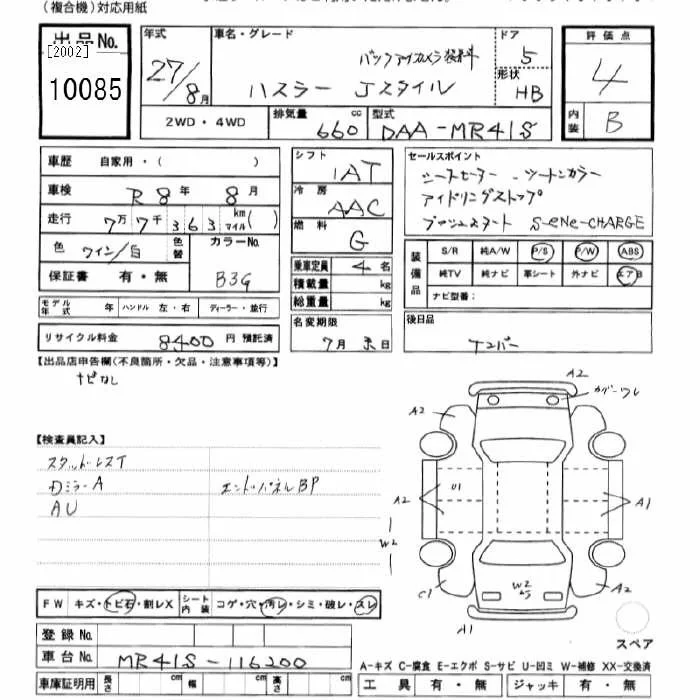 (複合機)対応用紙
出品No.
[2002]
10085
年式
27/8月
車名・グレード
バックアイカメラ装着車
ハスラー Jスタイル
ドア
5
形状
HB
評価点
4
内装
B
2WD・4WD
排気量
660 cc
型式
DAA-MR41S
車歴 自家用・( )
車検 R8年 8月
走行 7万7千363 km マイル( )
色 ワイン/白
色替
カラーNo.
B3G
保証書 有・無
モデル年式 年 ハンドル 左・右 ディーラー・並行
リサイクル料金 8400円 預託済
シフト
IAT
冷房
AAC
燃料
G
乗車定員 4名
積載量 kg
総重量 kg
名変期限
7月末日
セールスポイント
シートヒーター ツートンカラー
アイドリングストップ
プッシュスタート S-eNe-CHARGE
装備品
S/R 純A/W P/S P/W ABS
純TV 純ナビ 革シート 外ナビ エアB
ナビ型番:
後日品
ナンバー
【出品店申告欄(不良箇所・欠品・注意事項等)】
ナビなし
【検査員記入】
スタッドレスT
Dミラー A
エンドパネルBP
AU
A2
カバーワレ
A2
A2
U1
A1
W2
C1
W2
A2
A1
スペア
FW キズ・トビ石・割レX
シート内装 コゲ・穴・汚レ・シミ・破レ・スレ
登録No.
車台No. MR41S-116200
車庫証明用 長さ cm 幅 cm 高さ cm
A-キズ C-腐食 E-エクボ S-サビ U-凹ミ W-補修 XX-交換済
工具 有・無 ジャッキ 有・無